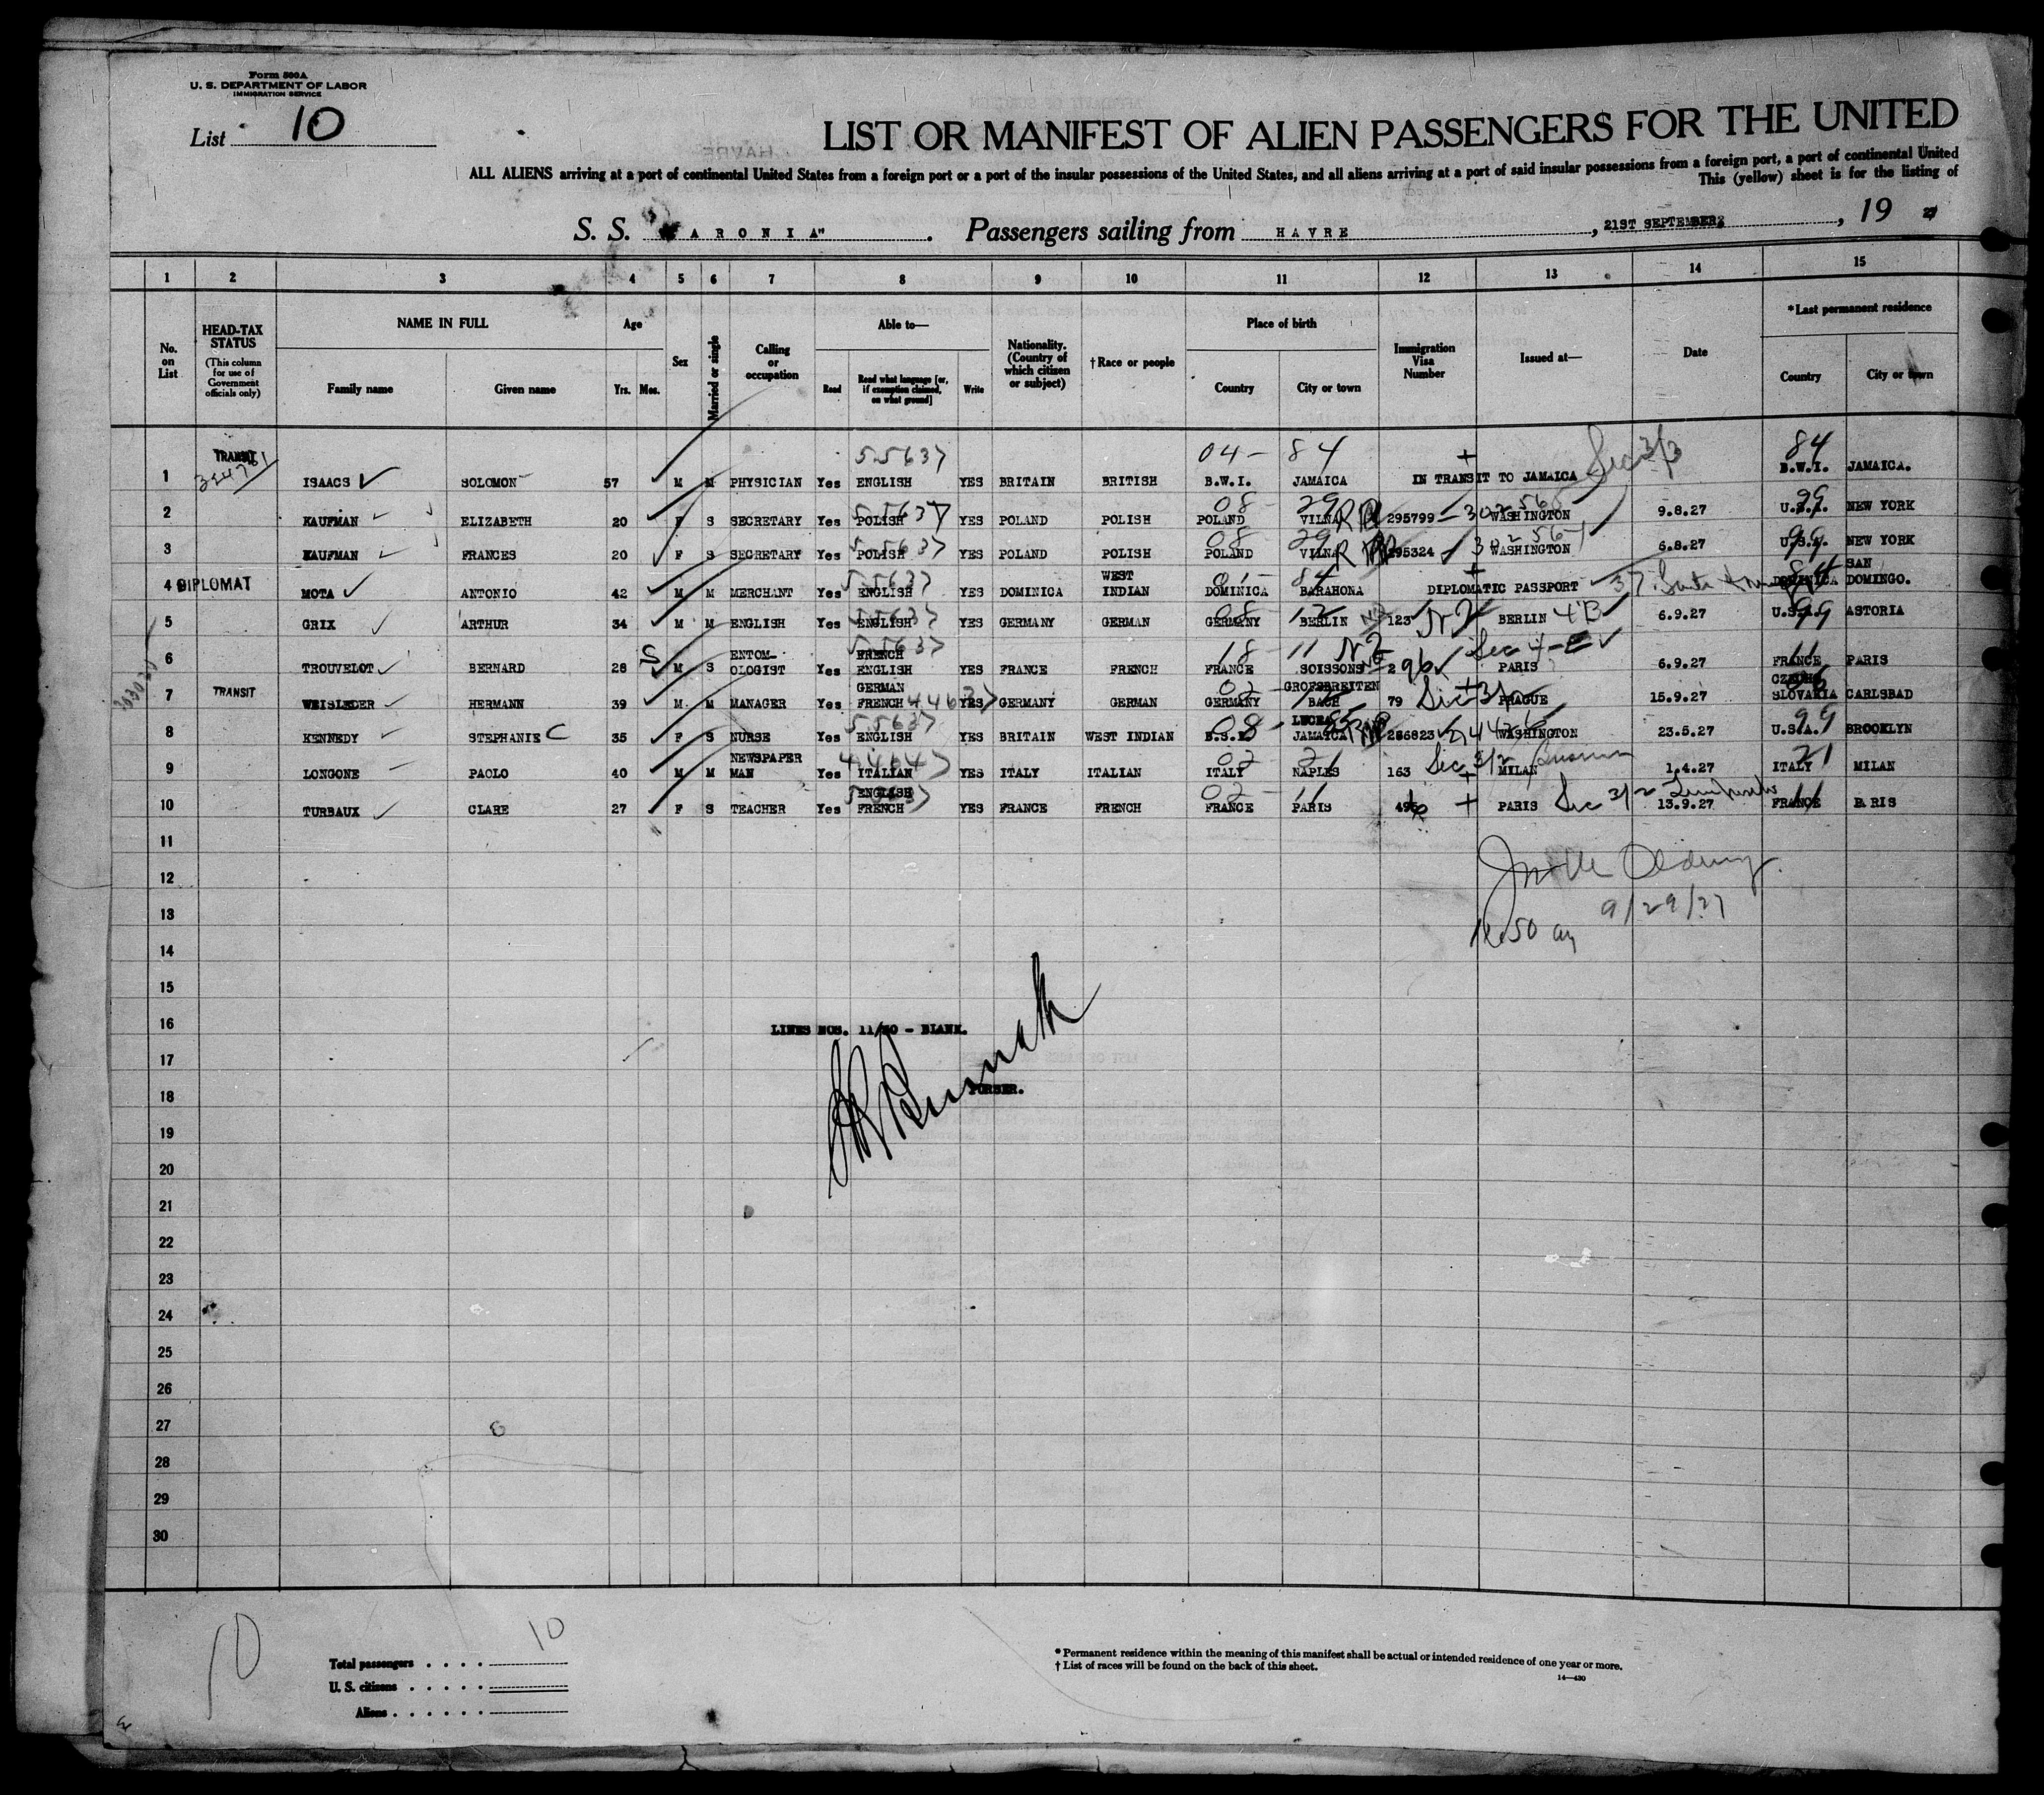 Form 500A
U. S. DEPARTMENT OF LABOR
IMMIGRATION SERVICE
List 10
LIST OR MANIFEST OF ALIEN PASSENGERS FOR THE UNITED
ALL ALIENS arriving at a port of continental United States from a foreign port or a port of the insular possessions of the United States, and all aliens arriving at a port of said insular possessions from a foreign port, a port of continental United
This (yellow) sheet is for the listing of
S. S. ARONIA" . Passengers sailing from HAVRE , 21ST SEPTEMBER , 19 27
1 2 3 4 5 6 7 8 9 10 11 12 13 14 15
No. on List
HEAD-TAX STATUS
(This column for use of Government officials only)
NAME IN FULL
Family name Given name
Age
Yrs. Mos.
Sex
Married or single
Calling or occupation
Able to—
Read
Read what language [or, if exemption claimed, on what ground]
Write
Nationality. (Country of which citizen or subject)
† Race or people
Place of birth
Country City or town
Immigration Visa Number
Issued at—
Date
* Last permanent residence
Country City or town
55637 04 - 84 + Sec 3/3 84
1 TRANSIT ISAACS SOLOMON 57 M M PHYSICIAN Yes ENGLISH YES BRITAIN BRITISH B.W.I. JAMAICA IN TRANSIT TO JAMAICA B.W.I. JAMAICA.
2 KAUFMAN ELIZABETH 20 F S SECRETARY Yes POLISH YES POLAND POLISH POLAND VILNA 295799 WASHINGTON 9.8.27 U.S.A. NEW YORK
3 KAUFMAN FRANCES 20 F S SECRETARY Yes POLISH YES POLAND POLISH POLAND VILNA 295324 WASHINGTON 6.8.27 U.S.A. NEW YORK
4 DIPLOMAT MOTA ANTONIO 42 M M MERCHANT Yes ENGLISH YES DOMINICA WEST INDIAN DOMINICA BARAHONA DIPLOMATIC PASSPORT DOMINICA SAN DOMINGO.
5 GRIX ARTHUR 34 M M ENGLISH Yes ENGLISH YES GERMANY GERMAN GERMANY BERLIN 123 BERLIN 4 B 6.9.27 U.S.A. ASTORIA
6 TROUVELOT BERNARD 28 M S ENTOMOLOGIST Yes FRENCH ENGLISH YES FRANCE FRENCH FRANCE SOISSONS 296 PARIS 6.9.27 FRANCE PARIS
7 TRANSIT WEISLEDER HERMANN 39 M M MANAGER Yes GERMAN FRENCH YES GERMANY GERMAN GERMANY GROFSBREITENBACH 79 PRAGUE 15.9.27 CZECHO SLOVAKIA CARLSBAD
8 KENNEDY STEPHANIE C 35 F S NURSE Yes ENGLISH YES BRITAIN WEST INDIAN LUCEA JAMAICA 286823 WASHINGTON 23.5.27 U.S.A. BROOKLYN
9 LONGONE PAOLO 40 M M NEWSPAPER MAN Yes ITALIAN YES ITALY ITALIAN ITALY NAPLES 163 Sec 3/2 MILAN 1.4.27 ITALY MILAN
10 TURBAUX CLARE 27 F S TEACHER Yes ENGLISH FRENCH YES FRANCE FRENCH FRANCE PARIS 496 + PARIS Sec 3/2 13.9.27 FRANCE PARIS
11
12
13 9/29/27
14
15
16 LINES NOS. 11/30 - BLANK.
17
18 PURSER.
19
20
21
22
23
24
25
26
27
28
29
30
10
Total passengers . . . . 10
U. S. citizens . . . . .
Aliens . . . . . .
* Permanent residence within the meaning of this manifest shall be actual or intended residence of one year or more.
† List of races will be found on the back of this sheet.
14—430